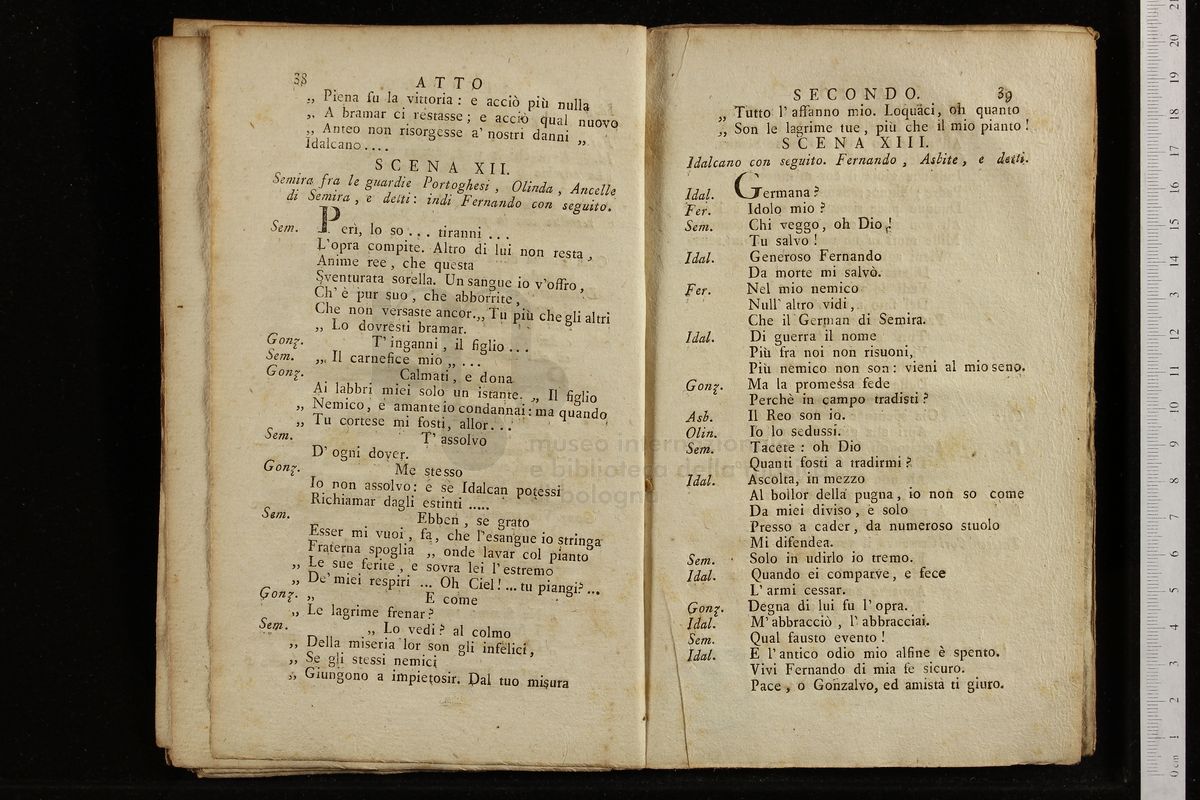 38 ATTO
„ Piena fu la vittoria : e acciò più nulla
„ A bramar ci restasse ; e acciò qual nuovo
„ Anteo non risorgesse a' nostri danni „
Idalcano ....
SCENA XII.
Semira fra le guardie Portoghesi , Olinda , Ancelle
di Semira , e detti : indi Fernando con seguito.
Sem. Perì, lo so ... tiranni ...
L'opra compite. Altro di lui non resta ,
Anime ree , che questa
Sventurata sorella. Un sangue io v'offro ,
Ch' è pur suo , che abborrite ,
Che non versaste ancor. „ Tu più che gli altri
„ Lo dovresti bramar.
Gonz. T' inganni , il figlio ...
Sem. „ Il carnefice mio „ ...
Gonz. Calmati , e dona
Ai labbri miei solo un istante. „ Il figlio
„ Nemico , e amante io condannai : ma quando
„ Tu cortese mi fosti, allor...
Sem. T' assolvo
D' ogni dover.
Gonz. Me stesso
Io non assolvo : e se Idalcan potessi
Richiamar dagli estinti .....
Sem. Ebben , se grato
Esser mi vuoi , fa , che l'esangue io stringa
Fraterna spoglia „ onde lavar col pianto
„ Le sue ferite , e sovra lei l' estremo
„ De' miei respiri ... Oh Ciel ! ... tu piangi ? ...
Gonz. „ E come
„ Le lagrime frenar ?
Sem. „ Lo vedi ? al colmo
„ Della miseria lor son gli infelici ,
„ Se gli stessi nemici
„ Giungono a impietosir. Dal tuo misura
SECONDO. 39
„ Tutto l' affanno mio. Loquaci, oh quanto
„ Son le lagrime tue , più che il mio pianto !
SCENA XIII.
Idalcano con seguito. Fernando , Asbite , e detti.
Idal. Germana ?
Fer. Idolo mio ?
Sem. Chi veggo, oh Dio !
Tu salvo !
Idal. Generoso Fernando
Da morte mi salvò.
Fer. Nel mio nemico
Null' altro vidi ,
Che il German di Semira.
Idal. Di guerra il nome
Più fra noi non risuoni,
Più nemico non son : vieni al mio seno.
Gonz. Ma la promessa fede
Perchè in campo tradisti ?
Asb. Il Reo son io.
Olin. Io lo sedussi.
Sem. Tacete : oh Dio
Quanti fosti a tradirmi ?
Idal. Ascolta, in mezzo
Al bollor della pugna , io non so come
Da miei diviso , e solo
Presso a cader , da numeroso stuolo
Mi difendea.
Sem. Solo in udirlo io tremo.
Idal. Quando ei comparve , e fece
L' armi cessar.
Gonz. Degna di lui fu l' opra.
Idal. M' abbracciò , l' abbracciai.
Sem. Qual fausto evento !
Idal. E l' antico odio mio alfine è spento.
Vivi Fernando di mia fe sicuro.
Pace , o Gonzalvo, ed amistà ti giuro.